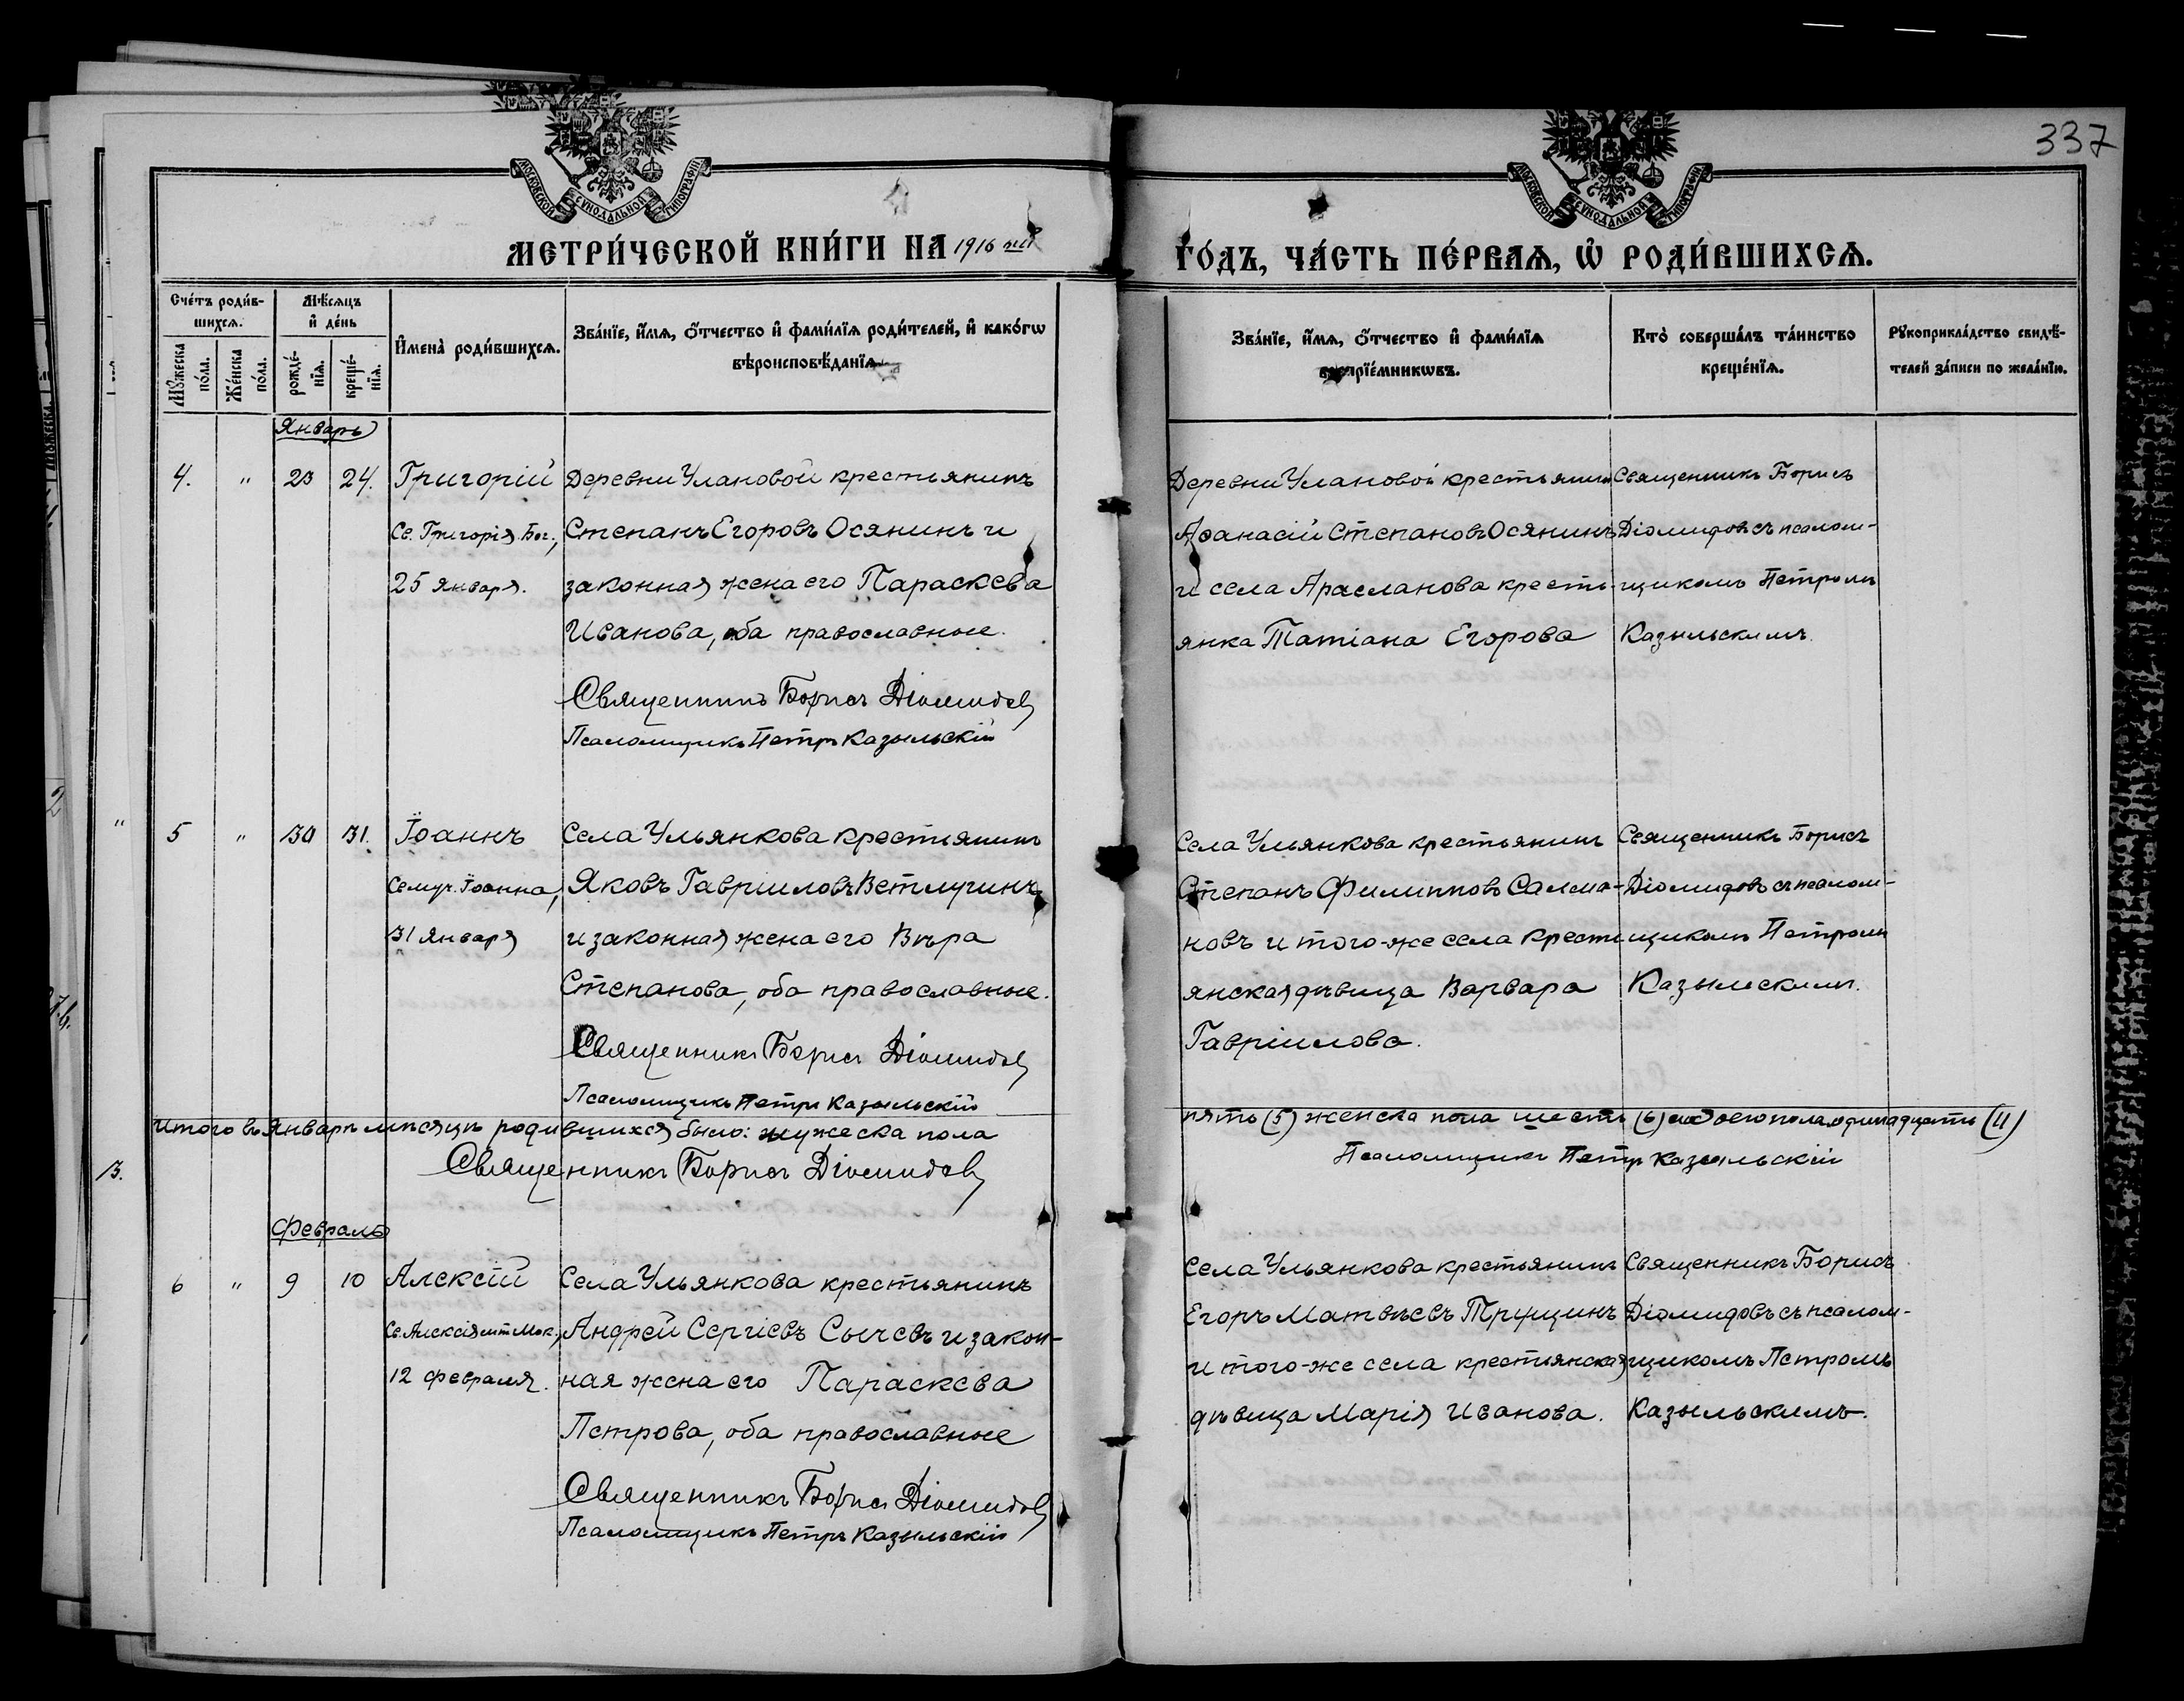 337
МОСКОВСКОЙ СѴНОДАЛЬНОЙ ТИПОГРАФІИ
МОСКОВСКОЙ СѴНОДАЛЬНОЙ ТИПОГРАФІИ
МЕТРИ́ЧЕСКОЙ КНИ́ГИ НА 1916 ый ГО́ДЪ, ЧА́СТЬ ПЕ́РВАѦ, Ѡ҆ РОДИ́ВШИХСѦ.
Сче́тъ роди́в-
шихсѧ.
Мꙋ́жеска по́ла.
Же́нска по́ла.
Мѣ́сѧцъ
и҆ де́нь
рожде́-
нїѧ.
креще́-
нїѧ.
И҆мена̀ роди́вшихсѧ.
Зва́нїе, и҆́мѧ, ѻ҆́тчество и҆ фами́лїѧ роди́телей, и҆ како́гѡ
вѣроисповѣ́данїѧ.
Зва́нїе, и҆́мѧ, ѻ҆́тчество и҆ фами́лїѧ
воспрїе́мникѡвъ.
Кто̀ соверша́лъ та́инство
креще́нїѧ.
Рꙋкоприкла́дство свидѣ́-
телей за́писи по жела́нїю.
Январь
4. " 23 24. Григорій
Св. Григорія Бог.,
25 января.
Деревни Улановой крестьянинъ
Степанъ Егоровъ Осянинъ и
законная жена его Параскева
Иванова, оба православные.
Священникъ Борисъ Діомидовъ
Псаломщикъ Петръ Казыльскій
Деревни Улановой крестьянинъ
Аѳанасій Степановъ Осянинъ
и села Арасланова кресть-
янка Татіана Егорова
Священникъ Борисъ
Діомидовъ съ псалом-
щикомъ Петромъ
Казыльскимъ.
5 " 30 31. Іоаннъ
Семуч. Іоанна,
31 января
Села Ульянкова крестьянинъ
Яковъ Гавріиловъ Ветлугинъ
и законная жена его Вѣра
Степанова, оба православные.
Священникъ Борисъ Діомидовъ
Псаломщикъ Петръ Казыльскій
Села Ульянкова крестьянинъ
Степанъ Филипповъ Салма-
новъ и того-же села кресть
янская дѣвица Варвара
Гавріилова.
Священникъ Борисъ
Діомидовъ съ псалом-
щикомъ Петромъ
Казыльскимъ.
Итого въ Январѣ мѣсяцѣ родившихся было: мужеска пола пять (5) женска пола шесть (6) обоего пола одинадцать (11)
Священникъ Борисъ Діомидовъ
Псаломщикъ Петръ Казыльскій
Февраль
6 " 9 10 Алексій
Св. Алексія мит. Мок.,
12 февраля.
Села Ульянкова крестьянинъ
Андрей Сергіевъ Сычевъ и закон-
ная жена его Параскева
Петрова, оба православные
Священникъ Борисъ Діомидовъ
Псаломщикъ Петръ Казыльскій
Села Ульянкова крестьянинъ
Егоръ Матвѣевъ Трущинъ
и того-же села крестьянская
дѣвица Марія Иванова.
Священникъ Борисъ
Діомидовъ съ псалом-
щикомъ Петромъ
Казыльскимъ.